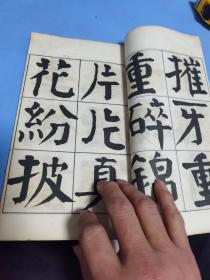 摧牙重
重碎錦
片片真
花紛披